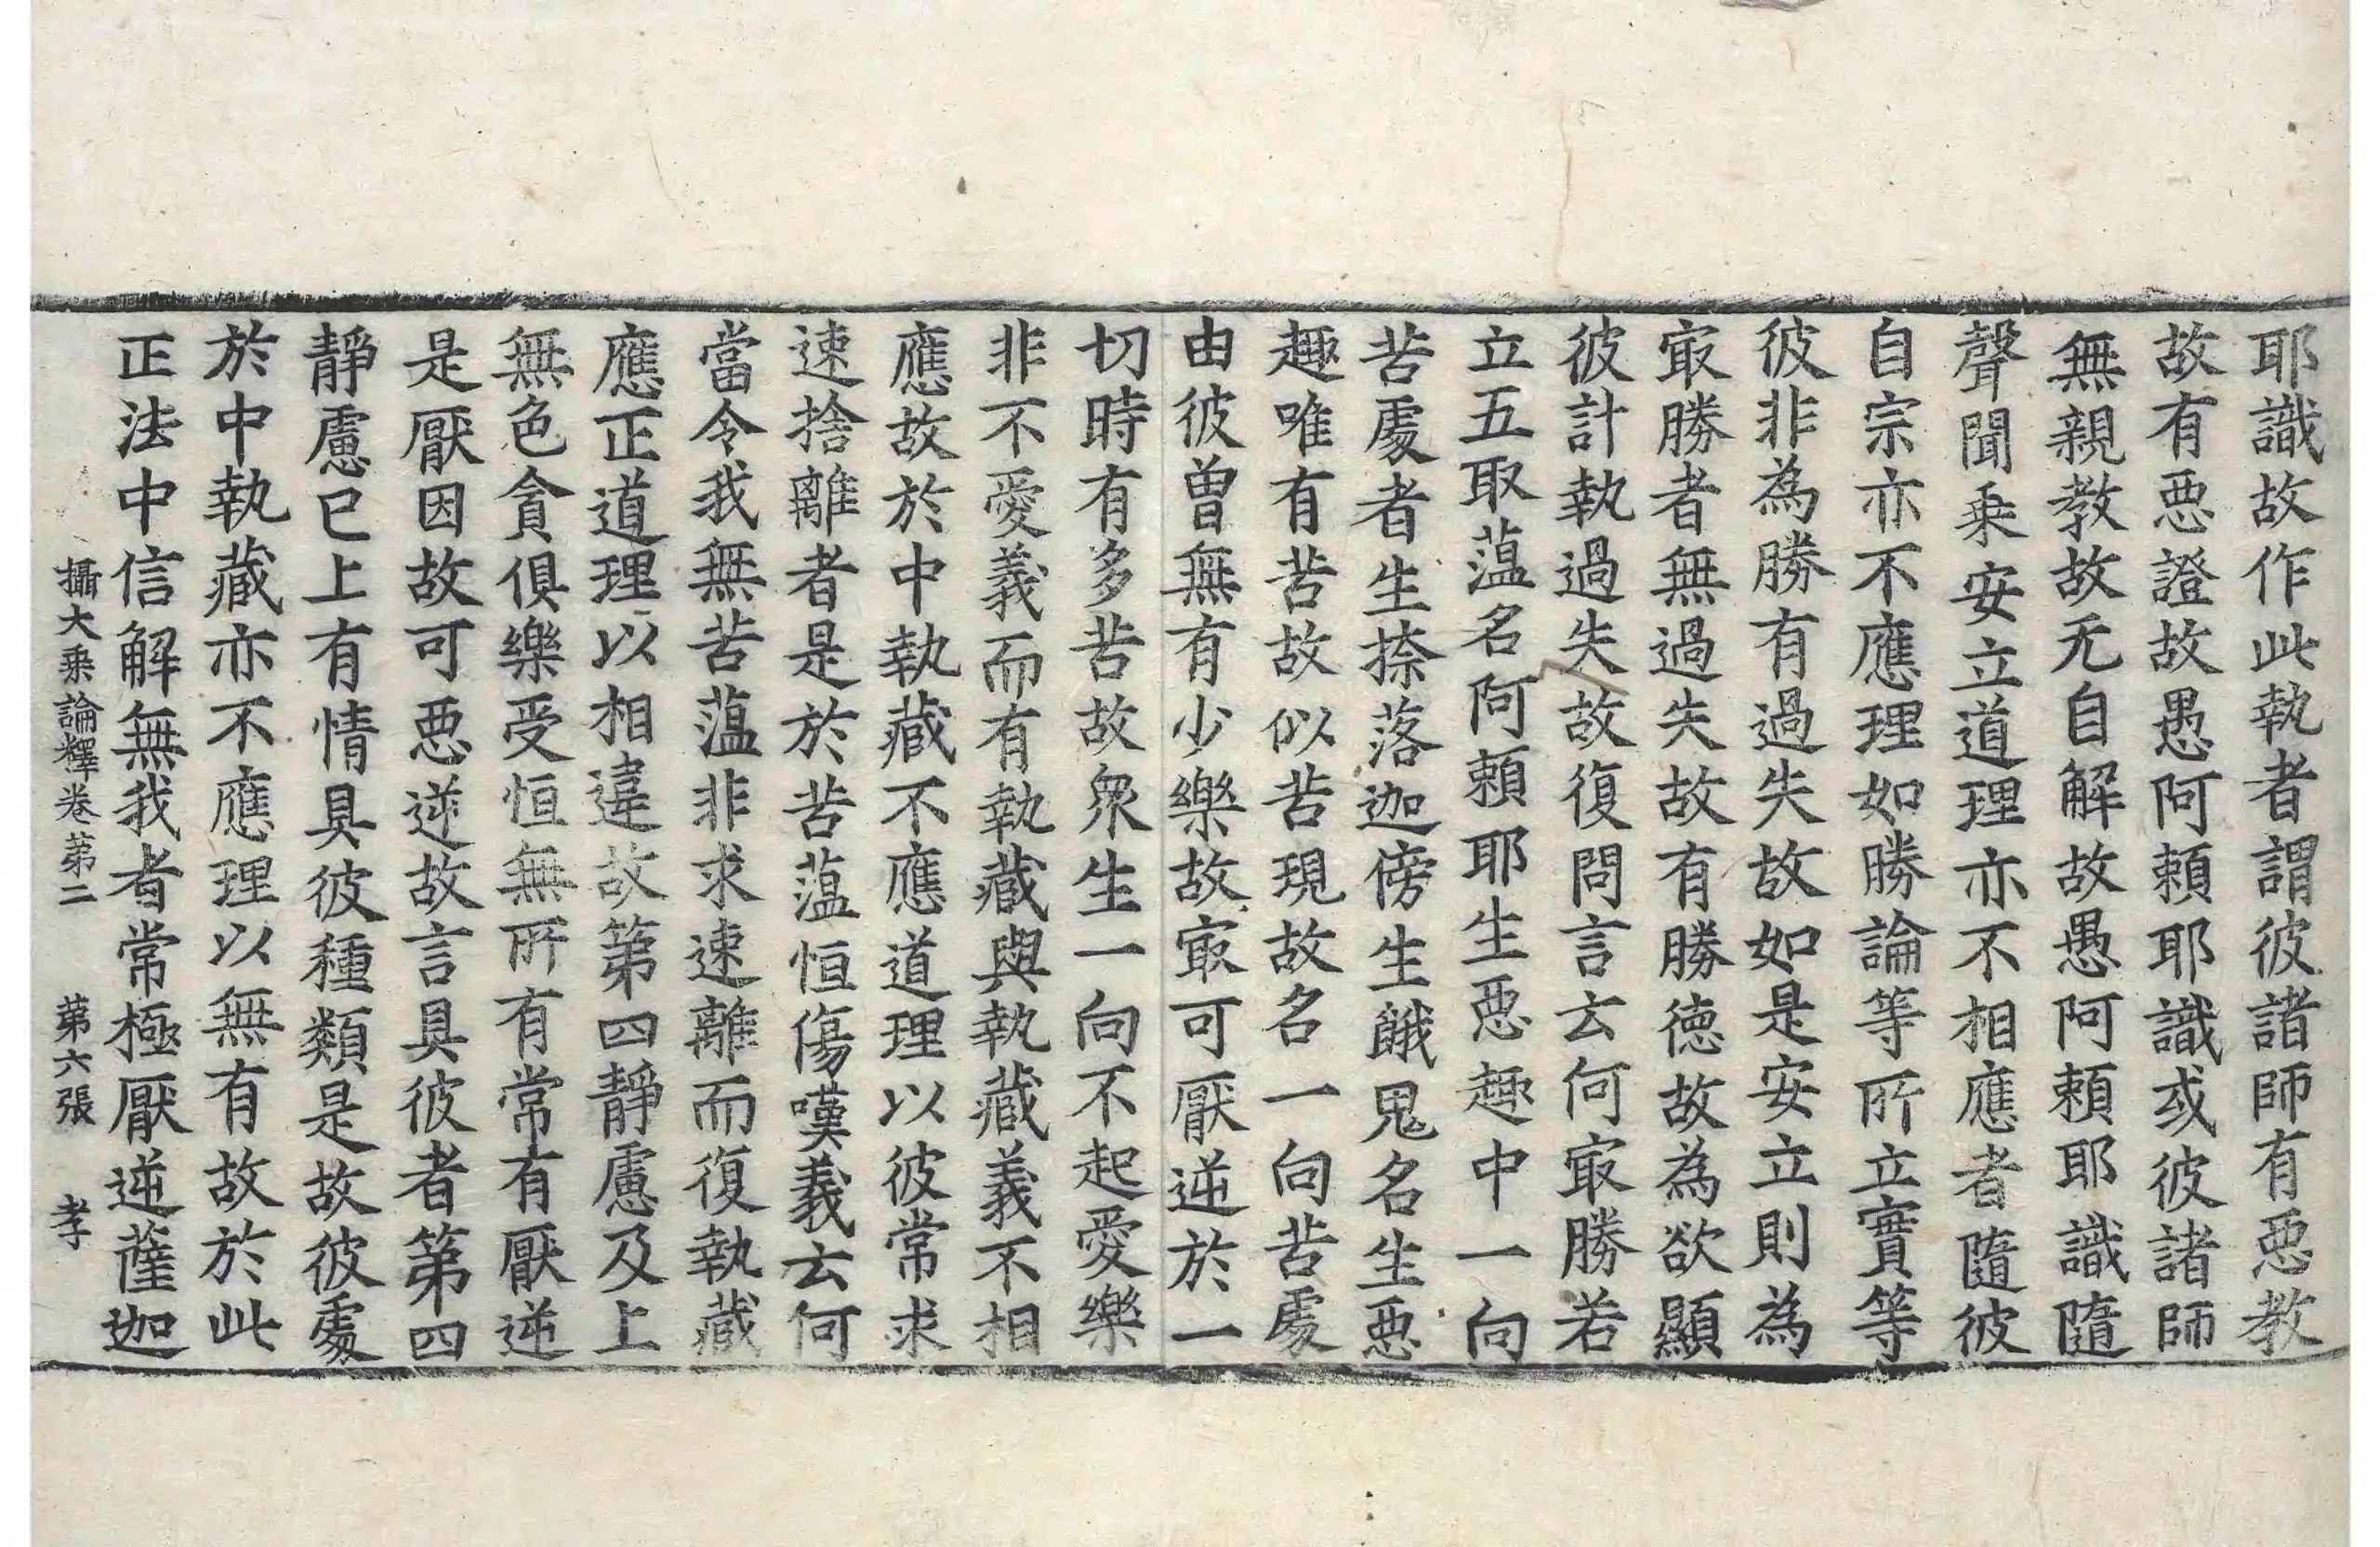 耶識故作此執者謂彼諸師有惡教
故有惡證故愚阿頼耶識或彼諸師
無親教故无自解故愚阿頼耶識隨
聲聞乗安立道理亦不相應者隨彼
自宗亦不應理如勝論等所立實等
彼非為勝有過失故如是安立則為
㝡勝者無過失故有勝徳故為欲顯
彼計執過失故復問言云何㝡勝若
立五取薀名阿頼耶生惡趣中一向
苦處者生捺落迦傍生餓鬼名生惡
趣唯有苦故似苦現故名一向苦處
由彼曽無有少樂故㝡可厭逆於一
切時有多苦故衆生一向不起愛樂
非不愛義而有執藏與執藏義不相
應故於中執藏不應道理以彼常求
速捨離者是於苦薀恒傷嘆義云何
當令我無苦薀非求速離而復執藏
應正道理以相違故第四靜慮及上
無色貪俱樂受恒無所有常有厭逆
是厭因故可惡逆故言具彼者第四
靜慮已上有情具彼種類是故彼處
於中執藏亦不應理以無有故於此
正法中信解無我者常極厭逆薩迦
攝大乗論釋卷苐二　苐六張　孝